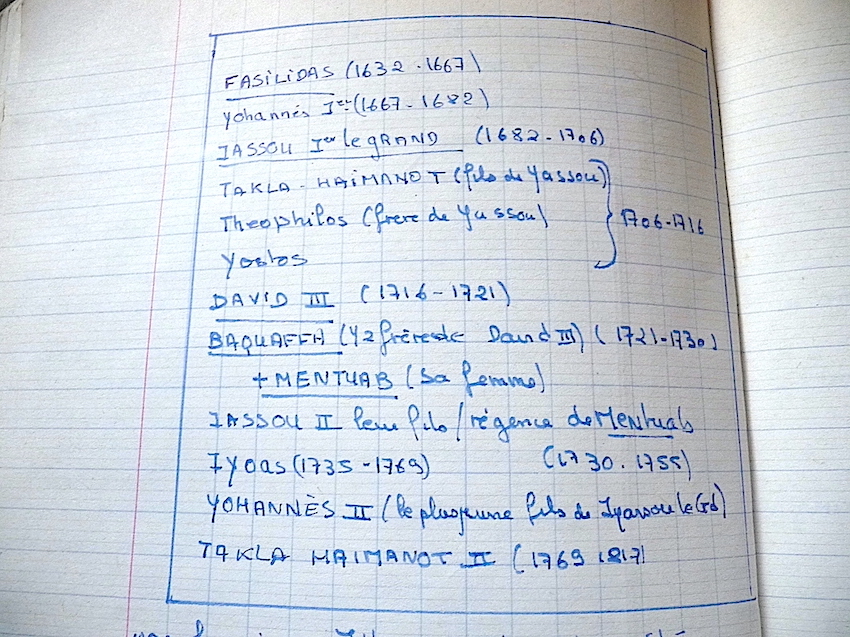 FASILIDAS (1632-1667)
Yohannés Ier (1667-1682)
IASSOU Ier le GRAND (1682-1706)
TAKLA-HAIMANOT (fils de Yassou)
Theophilos (frere de Yassou) 1706-1716
Yostos
DAVID III (1716-1721)
BAQUAFFA (1/2 frère de David III) (1721-1730)
+ MENTUAB (sa femme)
IASSOU II leur fils / régence de Mentuab
Iyoas (1735-1769) (1730.1755)
YOHANNÈS II (le plus jeune fils de Iyassou le Gd)
TAKLA HAIMANOT II (1769 1817)